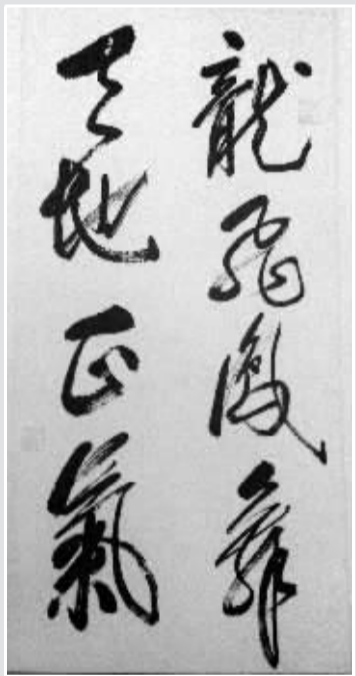 龍飛鳳舞
天地正氣